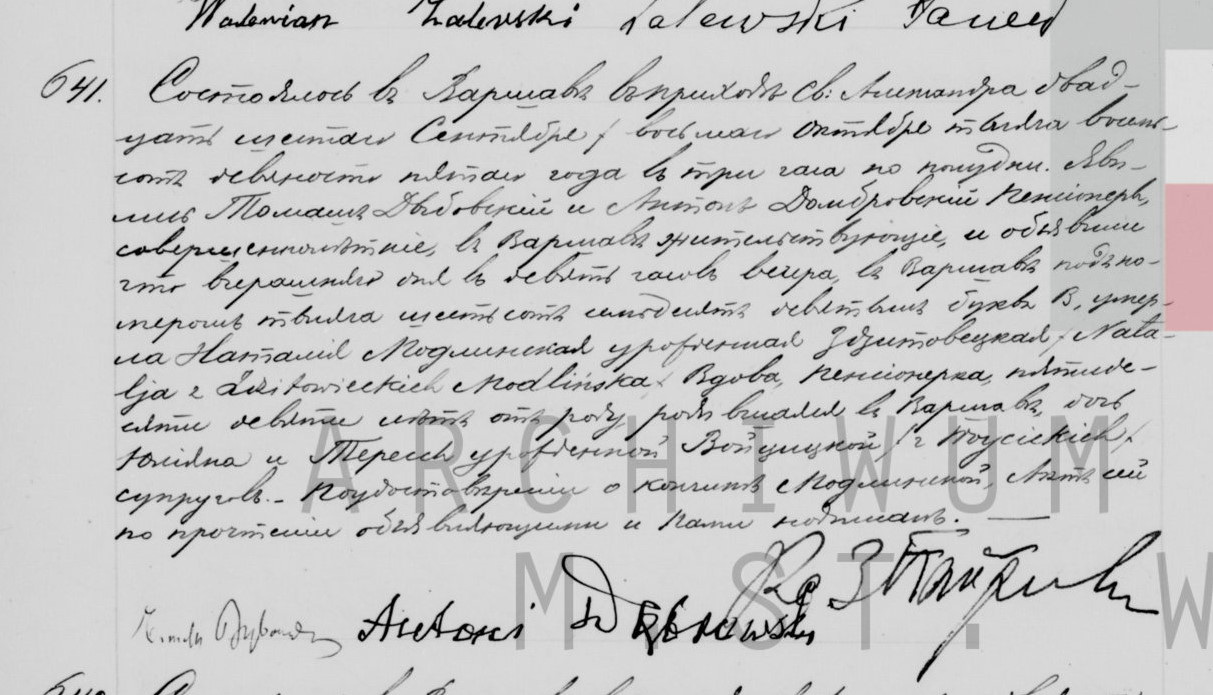 Walenian Zalewski Zalewski Paweł
641. Состоялось въ Варшавѣ въ приходѣ Св: Александра двад-
цать шестаго Сентября / восьмаго Октября тысяча восемь-
сотъ девяносто пятаго года въ три часа по полудни. Яви-
лись Томашъ Дыбовскій и Антонъ Домбровскій Пенсіонеры,
совершеннолѣтніе, въ Варшавѣ жительствующіе, и объявили
что вчерашняго дня въ девять часовъ вечера, въ Варшавѣ подъ но-
меромъ тысяча шестьсотъ семьдесятъ девятымъ буква В, умер-
ла Наталія Модлинская урожденная Здзитовецкая / Nata-
lja z Zdzitowieckich Modlińska / Вдова, Пенсіонерка, пятиде-
сяти девяти лѣтъ отъ роду родившаяся въ Варшавѣ, дочь
Юліяна и Терезы урожденной Войцицкой / z Woycickich /
супруговъ. - По удостовѣреніи о кончинѣ Модлинской, Актъ сей
по прочтеніи объявляющими и Нами подписанъ. —
Antoni Dąbrowski
ARCHIWUM
M ST. W